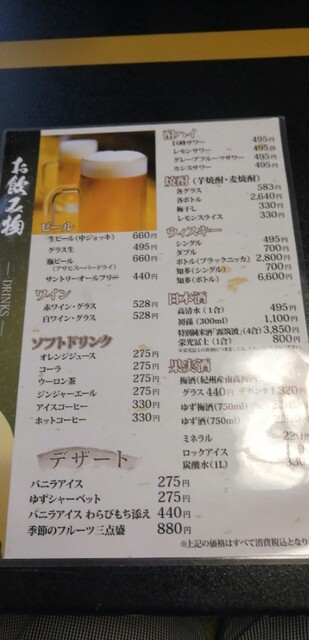 お飲み物
DRINKS
ビール
生ビール(中ジョッキ) 660円
グラス生 495円
瓶ビール 660円
(アサヒスーパードライ)
サントリーオールフリー 440円
ワイン
赤ワイン・グラス 528円
白ワイン・グラス 528円
ソフトドリンク
オレンジジュース 275円
コーラ 275円
ウーロン茶 275円
ジンジャーエール 275円
アイスコーヒー 330円
ホットコーヒー 330円
デザート
バニラアイス 275円
ゆずシャーベット 275円
バニラアイス わらびもち添え 440円
季節のフルーツ三点盛 880円
酎ハイ
巨峰サワー 495円
レモンサワー 495円
グレープフルーツサワー 495円
カシスサワー 495円
焼酎(芋焼酎・麦焼酎)
各グラス 583円
各ボトル 2,640円
梅干し 110円
レモンスライス 110円
ウィスキー
シングル 495円
ダブル 700円
ボトル(ブラックニッカ) 2,800円
知多(シングル) 700円
知多(ボトル) 6,600円
日本酒
高清水(1合) 495円
初孫(300ml) 1,100円
特別純米酒「霧筑波」(4合) 3,850円
栄光冨士(1合) 800円
果実酒
梅酒(紀州産南高梅
グラス 440円 デカンタ 1,320
ゆず梅酒(750ml)
ゆず酒(750ml)
ミネラル
ロックアイス
炭酸水(1L)
※上記の価格はすべて消費税込となり